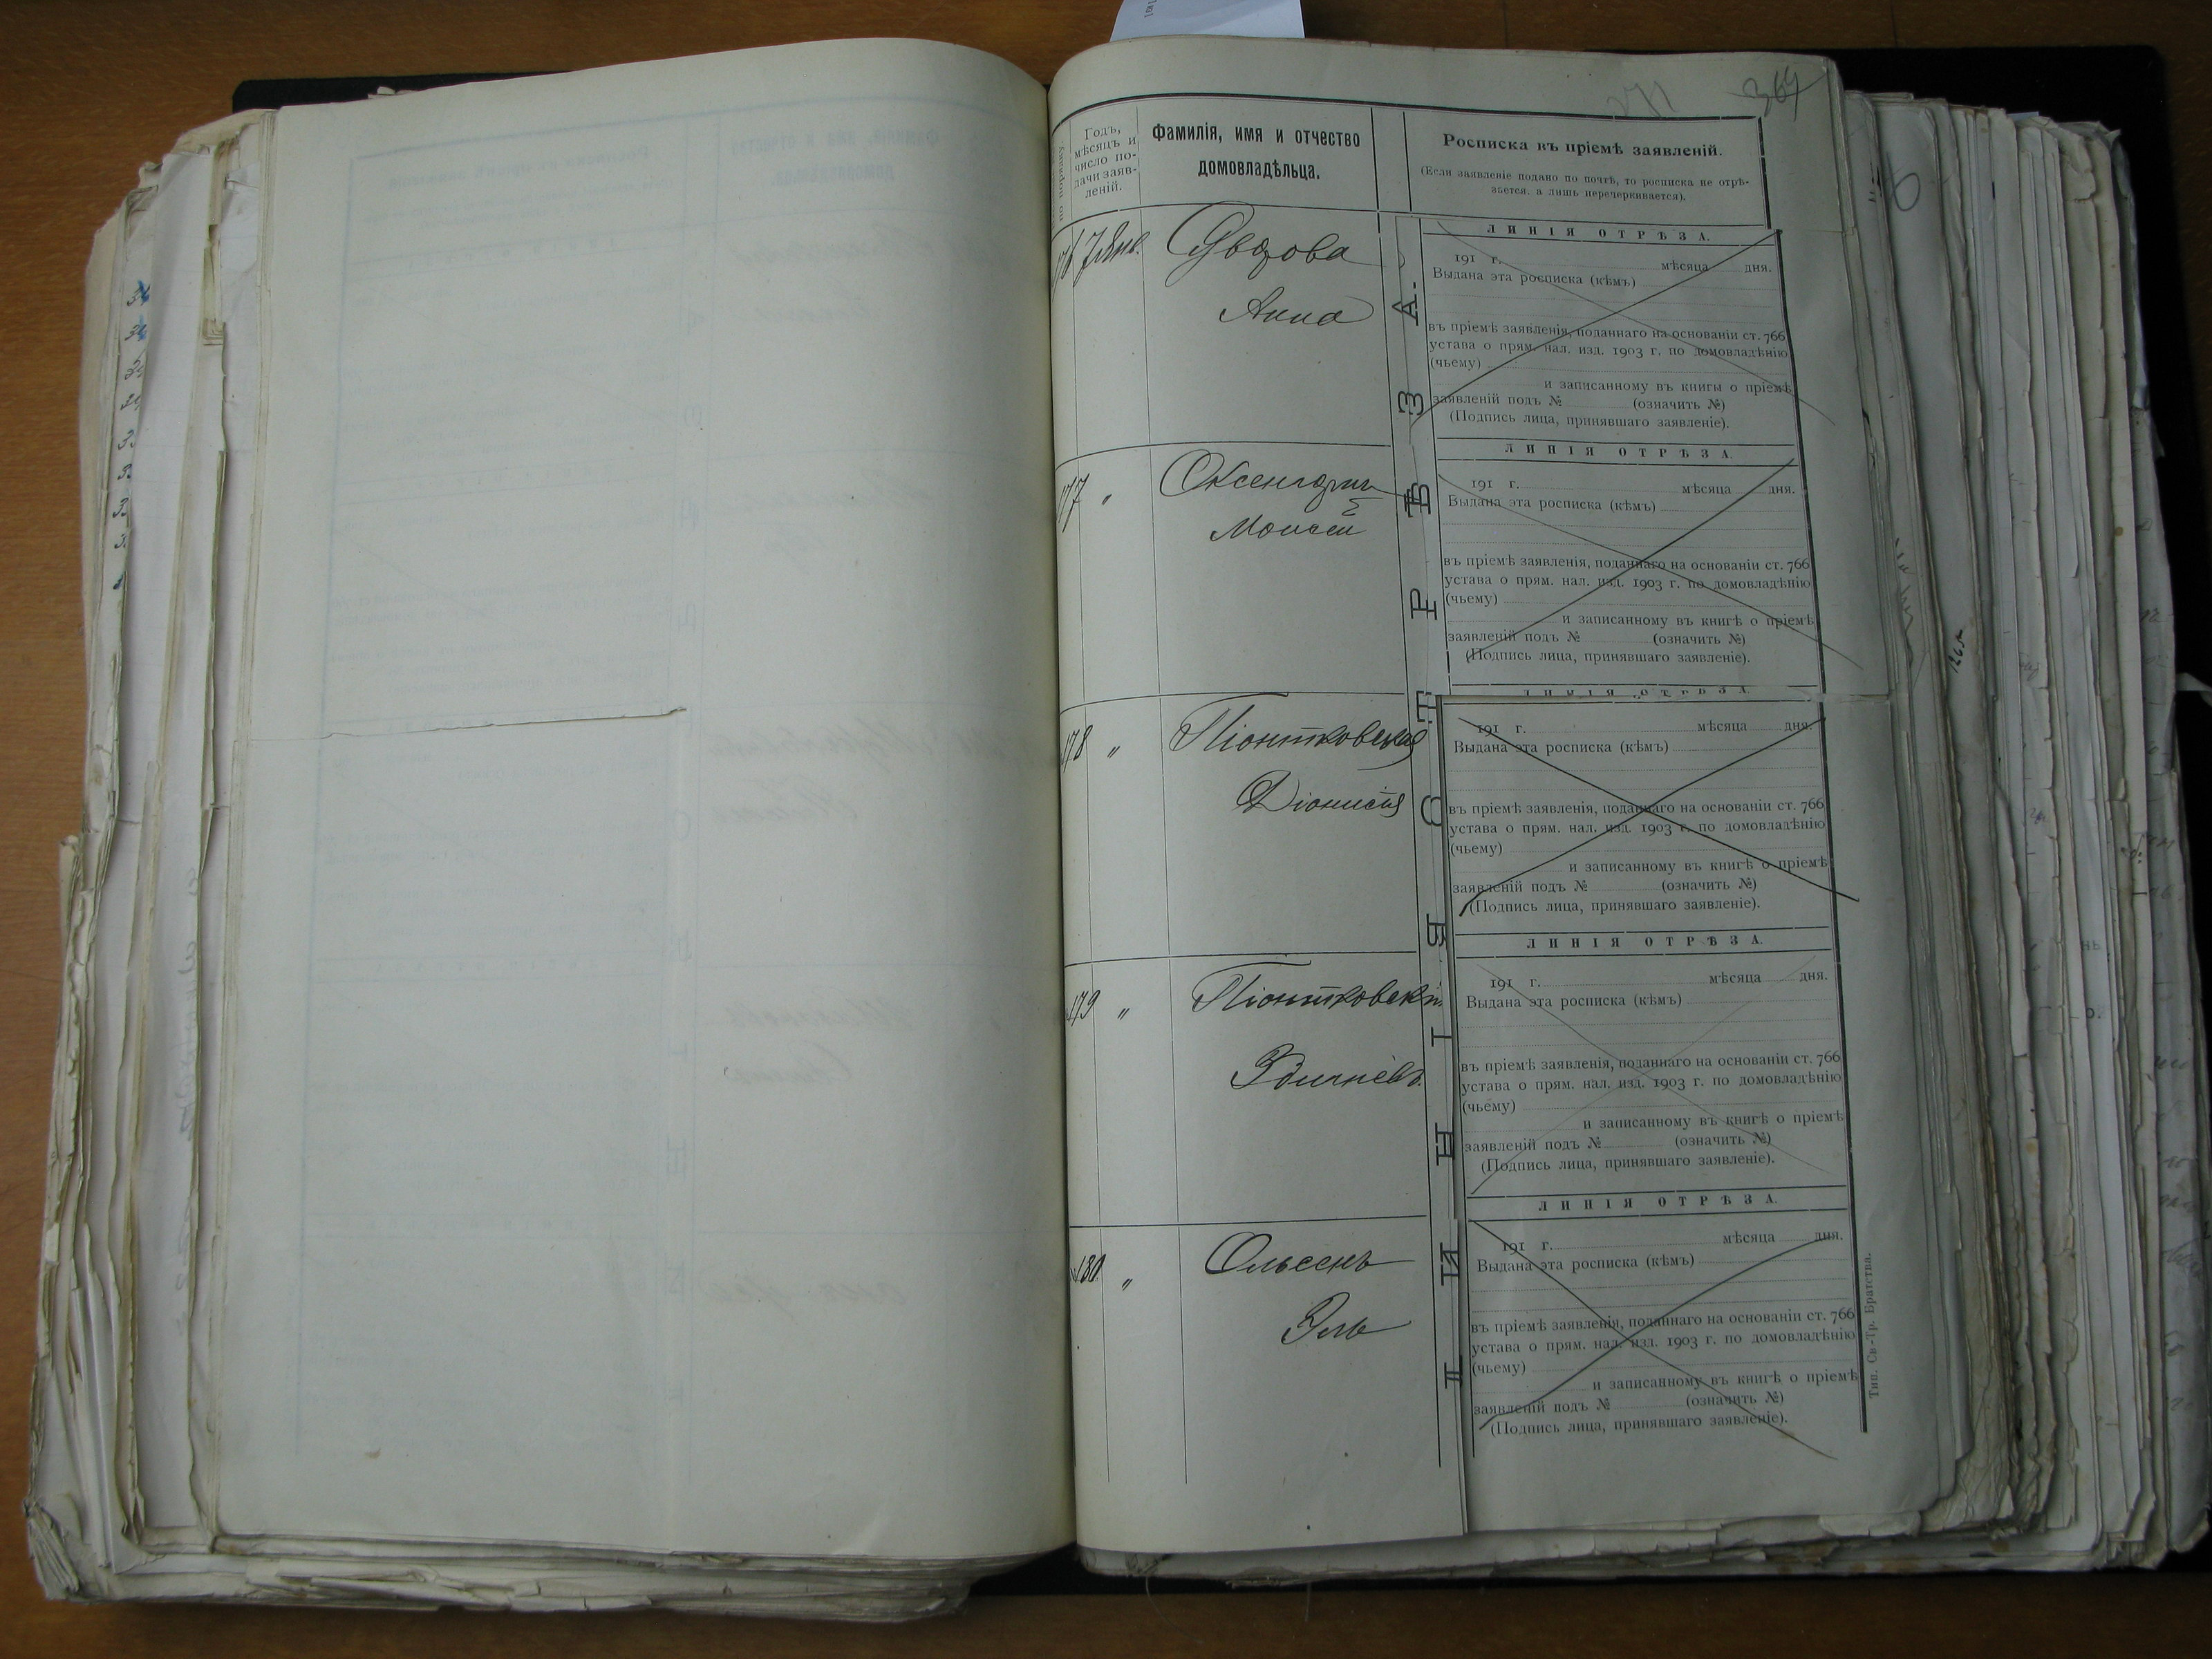 364
по порядку
Годъ,
мѣсяцъ и
число по-
дачи заяв-
леній.
Фамилія, имя и отчество
домовладѣльца.
Росписка въ пріемѣ заявленій.
(Если заявленіе подано по почтѣ, то росписка не отрѣ-
зается, а лишь перечеркивается).
176 7 Янв.
Анна
ЛИНІЯ ОТРѢЗА.
191 г. мѣсяца дня.
Выдана эта росписка (кѣмъ)
въ пріемѣ заявленія, поданнаго на основаніи ст. 766
устава о прям. нал. изд. 1903 г. по домовладѣнію
(чьему)
и записанному въ книгы о пріемѣ
заявленій подъ № (означить №)
(Подпись лица, принявшаго заявленіе).
177 "
Моисей
ЛИНІЯ ОТРѢЗА.
191 г. мѣсяца дня.
Выдана эта росписка (кѣмъ)
въ пріемѣ заявленія, поданнаго на основаніи ст. 766
устава о прям. нал. изд. 1903 г. по домовладѣнію
(чьему)
и записанному въ книгѣ о пріемѣ
заявленій подъ № (означить №)
(Подпись лица, принявшаго заявленіе).
178 "
Піонтковская
Діонисія
ЛИНІЯ ОТРѢЗА
191 г. мѣсяца дня.
Выдана эта росписка (кѣмъ)
въ пріемѣ заявленія, поданнаго на основаніи ст. 766
устава о прям. нал. изд. 1903 г. по домовладѣнію
(чьему)
и записанному въ книгѣ о пріемѣ
заявленій подъ № (означить №)
(Подпись лица, принявшаго заявленіе).
179 "
Піонтковскій
ЛИНІЯ ОТРѢЗА.
191 г. мѣсяца дня.
Выдана эта росписка (кѣмъ)
въ пріемѣ заявленія, поданнаго на основаніи ст. 766
устава о прям. нал. изд. 1903 г. по домовладѣнію
(чьему)
и записанному въ книгѣ о пріемѣ
заявленій подъ № (означить №)
(Подпись лица, принявшаго заявленіе).
180 "
Ольсенъ
ЛИНІЯ ОТРѢЗА.
191 г. мѣсяца дня.
Выдана эта росписка (кѣмъ)
въ пріемѣ заявленія, поданнаго на основаніи ст. 766
устава о прям. нал. изд. 1903 г. по домовладѣнію
(чьему)
и записанному въ книгѣ о пріемѣ
заявленій подъ № (означить №)
(Подпись лица, принявшаго заявленіе).
ЛИНІЯ ОТРѢЗА.
Тип. Св.-Тр. Братства.